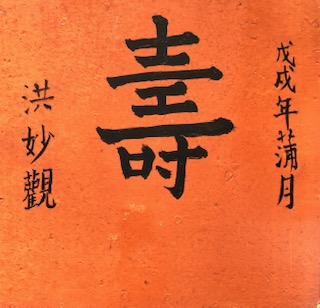 戊戌年蒲月
壽
洪妙觀